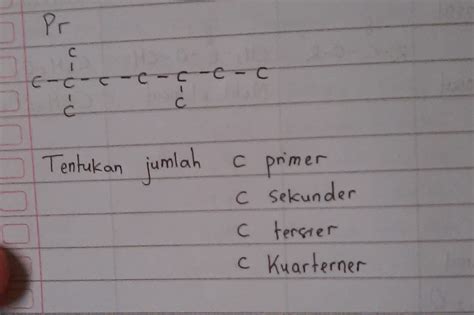 Pr
C
C - C - C - C - C - C - C
C C
Tentukan jumlah C primer
C sekunder
C tersier
C Kuarterner